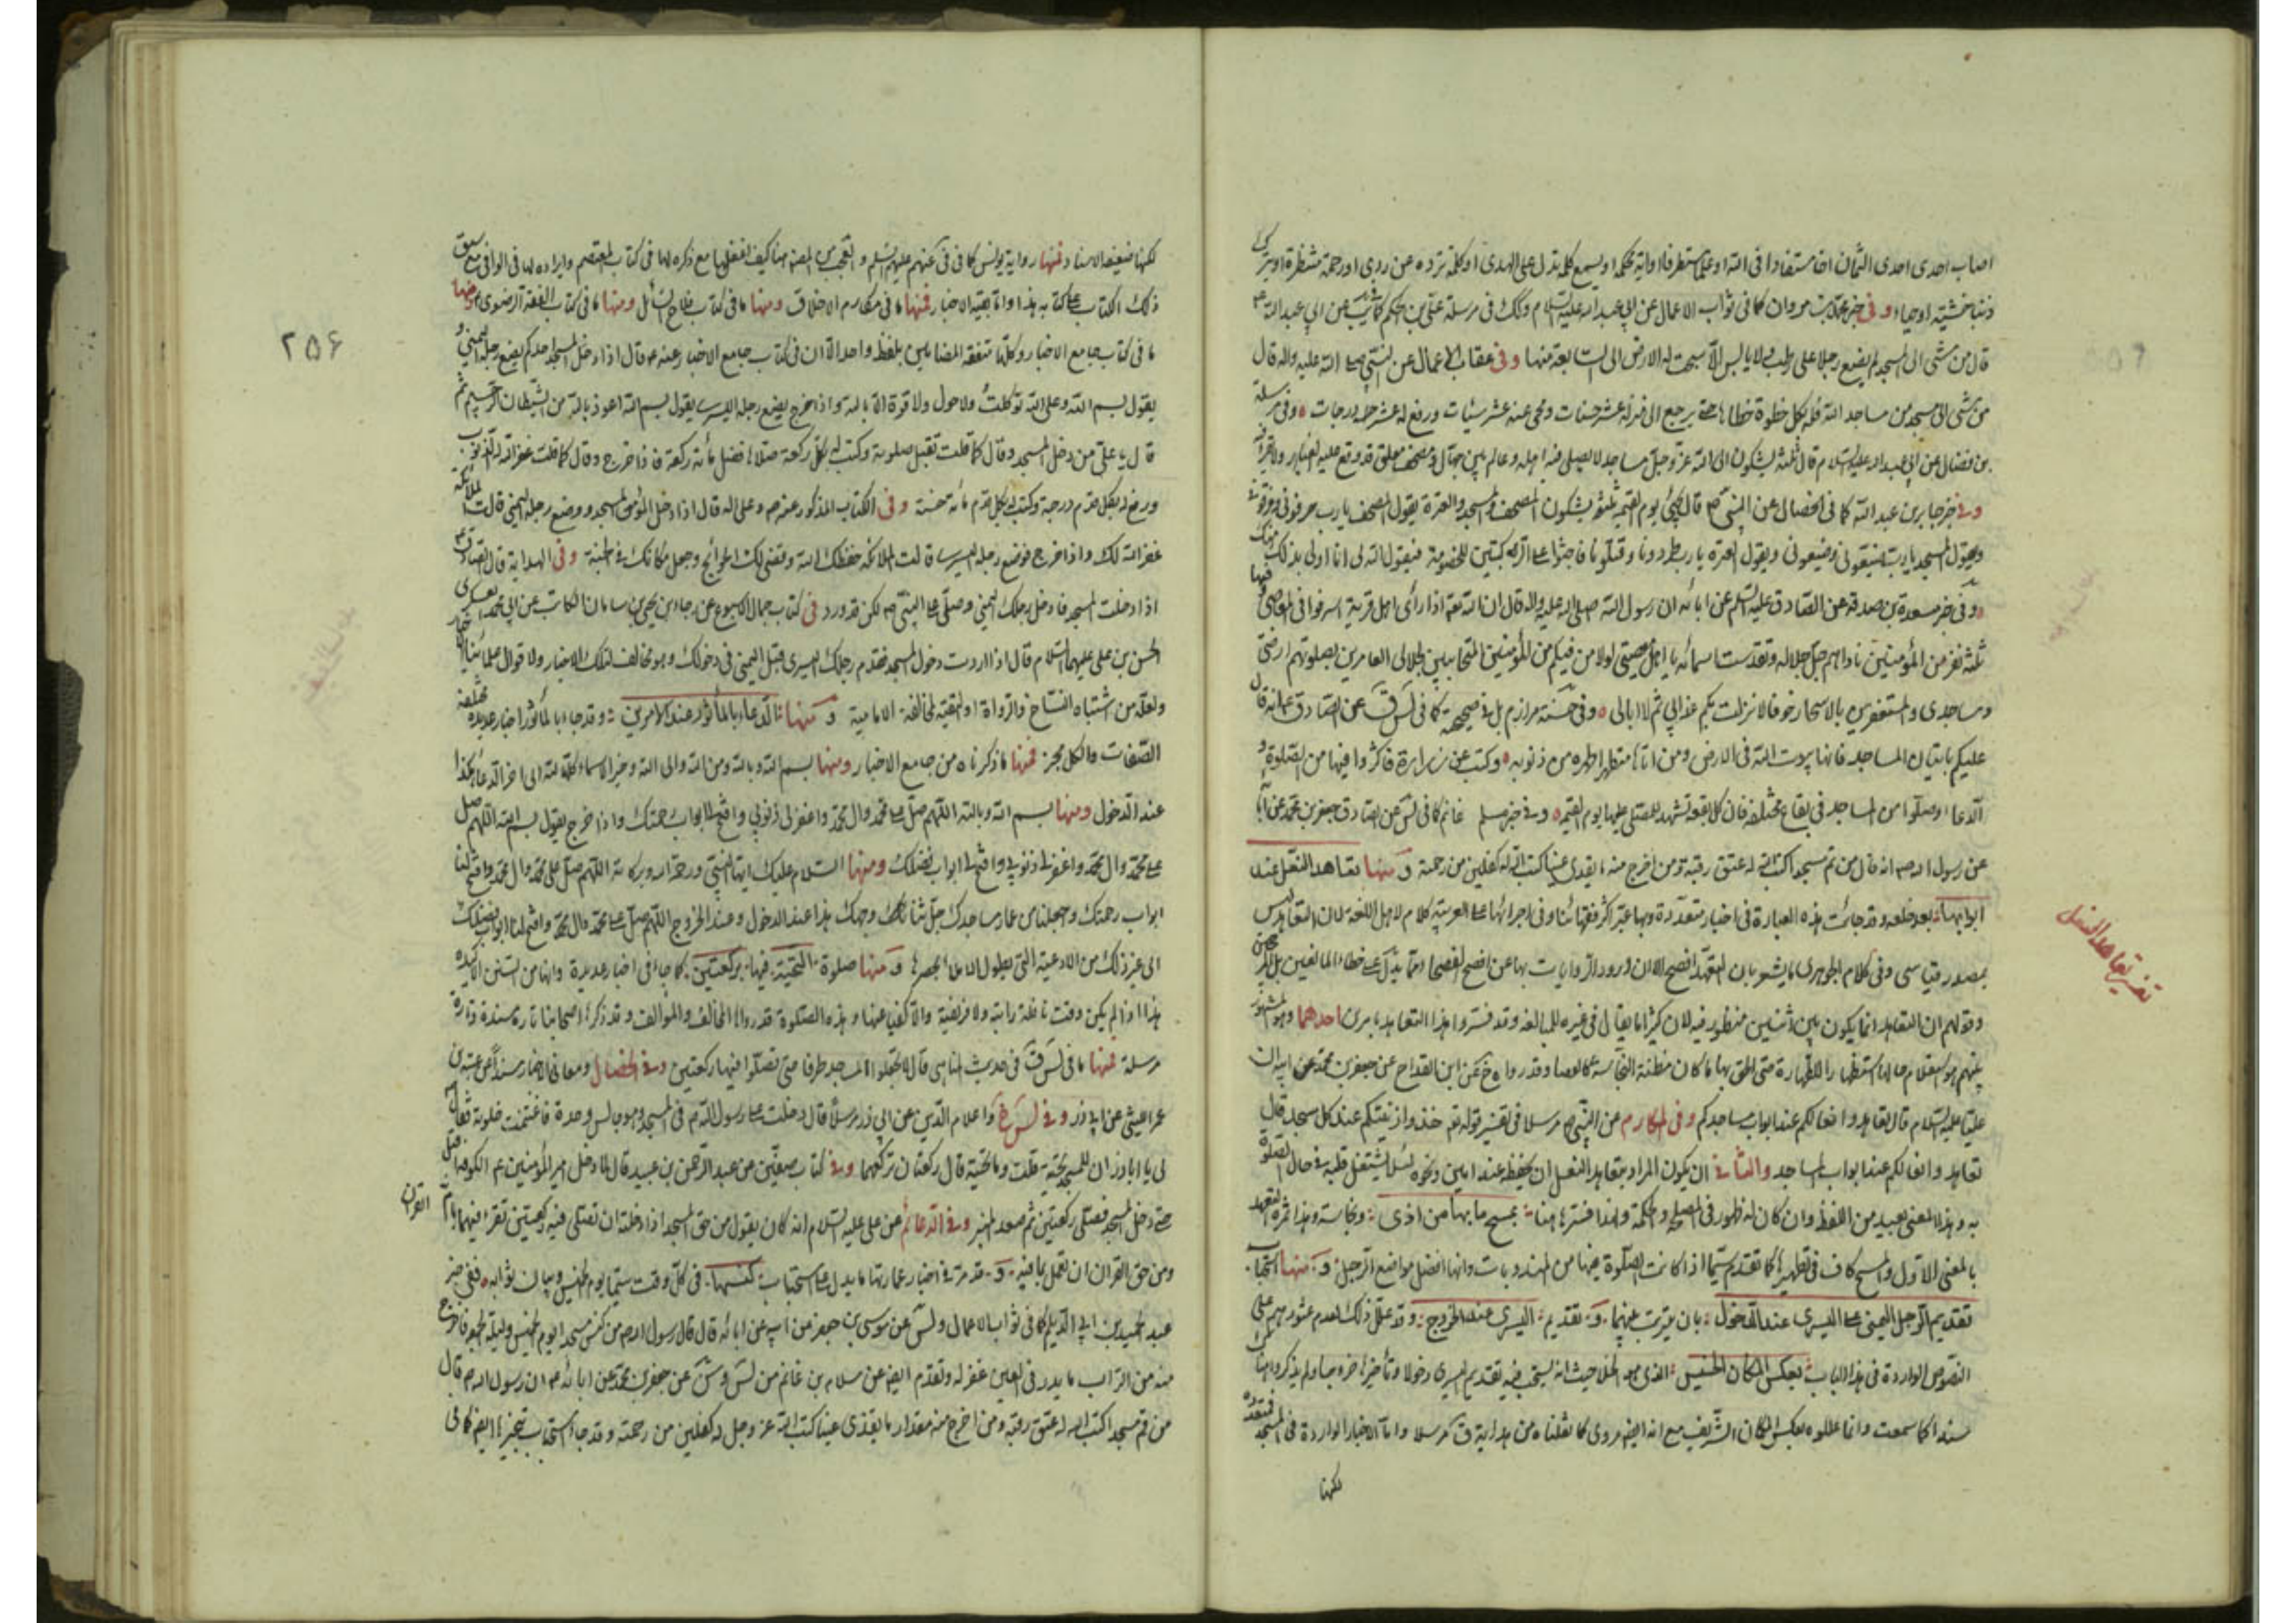 اصاب احدى احدى الثمان اخا مستفادا فى الله او علما مستطرفا او اية محكمة او يسمع كلمة تدل على الهدى او كلمة ترده عن ردى او رحمة منتظرة او يترك
ذنبا خشية او حياء وفى خبر بن مروان كما فى ثواب الاعمال عن ابي عبد الله عليه السلام وكك فى مرسلة على بن الحكم عن ابي عبد الله
قال من مشى الى المسجد لم يضع رجلا على رطب ولا يابس الا سبحت له الارض الى السابعة منها وفى عقاب الاعمال عن النبى صلى الله عليه واله قال
من مشى الى مسجد من مساجد الله فله بكل خطوة خطاها حتى يرجع الى منزله عشر حسنات ومحى عنه عشر سيئات ورفع له عشر درجات وفى مرسلة
بن فضال عن ابي عبد الله عليه السلام قال ثلثة يشكون الى الله عز وجل مساجد لا يصلى فيه اهله وعالم بين جهال ومصحف معلق قد وقع عليه الغبار ولا يقرأ
وفى خبر جابر بن عبد الله كما فى الخصال عن النبى ص قال يجئ يوم القيمة ثلثة يشكون المصحف والمسجد والعترة يقول المصحف يا رب حرفونى ومزقونى
ويقول المسجد يا رب وضيعونى ويقول العترة يا رب طردونا وقتلونا فاجثوا للركبتين للخصومة فيقول الله لى انا اولى بذلك
وفى خبر مسعدة بن صدقة عن الصادق عليه السلم عن ابائه ان رسول الله صلى الله عليه واله قال ان الله اذا رأى اهل قرية اسرفوا فى المعاصى وفيها
ثلثة نفر من المؤمنين ناداهم جل جلاله وتقدست اسمائه يا اهل معصيتى لولا من فيكم من المؤمنين المتحابين بجلالى العامرين بصلوتهم ارضى
ومساجدى والمستغفرين بالاسحار خوفا لانزلت بكم عذابي ثم لا ابالى وفى حسنة مرازم بل صحيحه كما فى عن الصادق انه قال
عليكم باتيان المساجد فانها بيوت الله فى الارض ومن اتاها متطهرا طهره من ذنوبه وكتب من زواره فاكثروا فيها من الصلوة و
الدعاء وصلوا من المساجد فى بقاع مختلفة فان كل بقعة تشهد للمصلى عليها يوم القيمة وفى خبر سلم غانم كما فى عن الصادق جعفر بن محمد عن ابائه
عن رسول الله ص انه قال من قم مسجدا كتب الله له عتق رقبة ومن اخرج منه ما يقذى عينا كتب الله له كفلين من رحمة ومنها تعاهد النعل عند
ابوابها بعد خلعه وقد جائت هذه العبارة فى اخبار متعددة وبها عبر اكثر فقهائنا وفى اجرائها على العربية كلام لاهل اللغة لان التعاهد ليس
بمصدر قياسى وفى كلام الجوهرى ما يشعر بان التعهد افصح الا ان ورود الروايات بها عن افصح الفصحاء مما يدل على خطاء المانعين
وقولهم ان التعاهد انما يكون بين اثنين منظور فيه لان كثيرا ما يقال فى غيره للمبالغة وقد فسروا هذا التعاهد بامرين احدهما وهو المشهور
بينهم هو استعلام حاله استظهارا للطهارة حتى الحق بها ما كان مظنة النجاسة كالعصا وقد رواه عن ابن القداح عن جعفر بن محمد عن ابيه ان
عليا عليه السلام قال تعاهدوا نعالكم عند ابواب مساجدكم وفى المكارم عن النبى ص مرسلا فى تفسير قوله تع خذوا زينتكم عند كل مسجد قال
تعاهدوا نعالكم عند ابواب المساجد والثانى ان يكون المراد بتعاهد النعل ان يحفظه عند امين ونحوه لئلا يشتغل قلبه فى حال الصلوة
به وهذا المعنى بعيد من اللفظ وان كان له ظهور فى المصلحة والحكمة ولهذا فسرها هنا بمسح ما بها من اذى ونجاسة وهذا ثمرة التعهد
بالمعنى الاول والمسح كاف فى تطهيرها كما تقدم سيما اذا كانت الصلوة فيها من المندوبات وانها افضل مواضع الرجل ومنها استحباب
تقديم الرجل اليمنى على اليسرى عند الدخول بان يترتب عليهما وتقديم اليسرى عند الخروج وقد علل ذلك لعدم عثورهم على
النصوص الواردة فى هذا الباب بعكس المكان الخسيس الذى هو الخلا حيث انه يستحب فيه تقديم اليسرى دخولا وتأخيرها خروجا ولم يذكروا هناك
سندا كما سمعت وانما عللوه بعكس المكان الشريف مع انه ايض مروى كما نقلناه من هداية مرسلا واما الاخبار الواردة فى المسجد فمتعددة
لكنها
تفسير تعاهد النعل
لكنها ضعيفة الاسناد فمنها رواية يونس كما فى عنهم عليهم السلم والعجب من المصنف هنا كيف اغفلها مع ذكره لها فى كتاب المعتصم وايراده لها فى الوافى مع سبق
ذلك الكتاب على كتابه هذا واما بقية الاخبار فمنها ما فى مكارم الاخلاق ومنها ما فى كتاب فلاح السائل ومنها ما فى كتاب الفقه الرضوى ومنها
ما فى كتاب جامع الاخبار وكلها متفقة المضامين بلفظ واحد الا ان فى كتاب جامع الاخبار عنه ص قال اذا دخل المسجد احدكم يضع رجله اليمنى و
يقول بسم الله وعلى الله توكلت ولا حول ولا قوة الا بالله واذا خرج يضع رجله اليسرى يقول بسم الله اعوذ بالله من الشيطان الرجيم ثم
قال يا على من دخل المسجد وقال كما قلت تقبل صلوته وكتب له بكل ركعة صلاها فضل مائة ركعة فاذا خرج وقال كما قلت غفر الله له الذنوب
ورفع له بكل قدم درجة وكتب له بكل قدم مائة حسنة وفى الكتاب المذكور عنه ص وعلى اله قال اذا دخل المؤمن المسجد ووضع رجله اليمنى قالت الملائكة
غفر الله لك واذا خرج فوضع رجله اليسرى قالت الملائكة حفظك الله وقضى لك الحوائج وجعل مكانك فى الجنة وفى الهداية قال الصادق
اذا دخلت المسجد فادخل رجلك اليمنى وصلى على النبى ص لكن قد ورد فى كتاب جمال الاسبوع عن رجاء بن يحيى بن سامان الكاتب عن ابي محمد العسكرى
الحسن بن على عليهما السلام قال اذا اردت دخول المسجد فقدم رجلك اليسرى قبل اليمنى فى دخولك وهو مخالف لتلك الاخبار ولاقوال علمائنا
ولعله من اشتباه النساخ والرواة او التقية لمخالفة الامامية ومنها الدعاء بالمأثور عند الامرين وقد جاء بالمأثور اخبار عديدة مختلفة
الصفات والكل مجز فمنها ما ذكرناه من جامع الاخبار ومنها بسم الله وبالله ومن الله والى الله وخير الاسماء كلها لله الى اخر الدعاء هكذا
عند الدخول ومنها بسم الله وبالله اللهم صل على محمد وال محمد واغفر لى ذنوبي وافتح لى ابواب رحمتك واذا خرج يقول بسم الله اللهم صل
على محمد وال محمد واغفر لى ذنوبي وافتح لى ابواب فضلك ومنها السلام عليك ايها النبى ورحمة الله وبركاته اللهم صل على محمد وال محمد وافتح لنا
ابواب رحمتك واجعلنا من عمار مساجدك جل ثناء وجهك هذا عند الدخول وعند الخروج اللهم صل على محمد وال محمد وافتح لنا ابواب فضلك
الى غير ذلك من الادعية التى يطول الاملاء بحصرها ومنها صلوة التحية فيها بركعتين كما جاء فى اخبار عديدة وانها من السنن الاكيدة
هذا اذا لم يكن وقت نافلة راتبة ولا فريضة والا كفيا عنها وهذه الصلوة قد رواها المخالف والمؤالف وقد ذكرها اصحابنا تارة مسندة وتارة
مرسلة فمنها ما فى فى حديث المناهى قال لا تجعلوا المساجد طرقا حتى تصلوا فيها ركعتين وفى الخصال ومعانى الاخبار مسندا عن عتبة بن
عمر الليثى عن ابي ذر وفى واعلام الدين عن ابي ذر مرسلا قال دخلت على رسول الله ص فى المسجد وهو جالس وحده فاغتنمت خلوته فقال
لى يا ابا ذر ان للمسجد تحية قلت وما تحيته قال ركعتان تركعهما وفى كتاب صفين عن عبد الرحمن بن عبيد قال لما دخل امير المؤمنين ع الكوفة اقبل
حتى دخل المسجد فصلى ركعتين ثم صعد المنبر وفى الدعائم عن على عليه السلام انه كان يقول من حق المسجد اذا دخلته ان تصلى فيه ركعتين تقرء فيهما بام القران
ومن حق القران ان تعمل بما فيه وقد مر فى اخبار عمارتها ما يدل على استحباب كنسها فى كل وقت سيما يوم الخميس وبيان ثوابه ففى خبر
عبد الحميد بن ابي الديلم كما فى ثواب الاعمال عن موسى بن جعفر عن ابيه عن ابائه قال قال رسول الله ص من كنس مسجدا يوم الخميس وليلة الجمعة فاخرج
منه من التراب ما يذر فى العين غفر له وتقدم ايض عن سلام بن غانم عن جعفر بن محمد عن ابائه ص ان رسول الله ص قال
من قم مسجدا كتب الله له عتق رقبة ومن اخرج منه مقدار ما يقذى عينا كتب الله عز وجل له كفلين من رحمة وقد جاء استحباب تجميرها ايض كما فى
۲۵۶